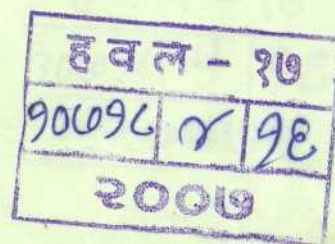 हवल - १७
१०७१८ ४ १६
२००७